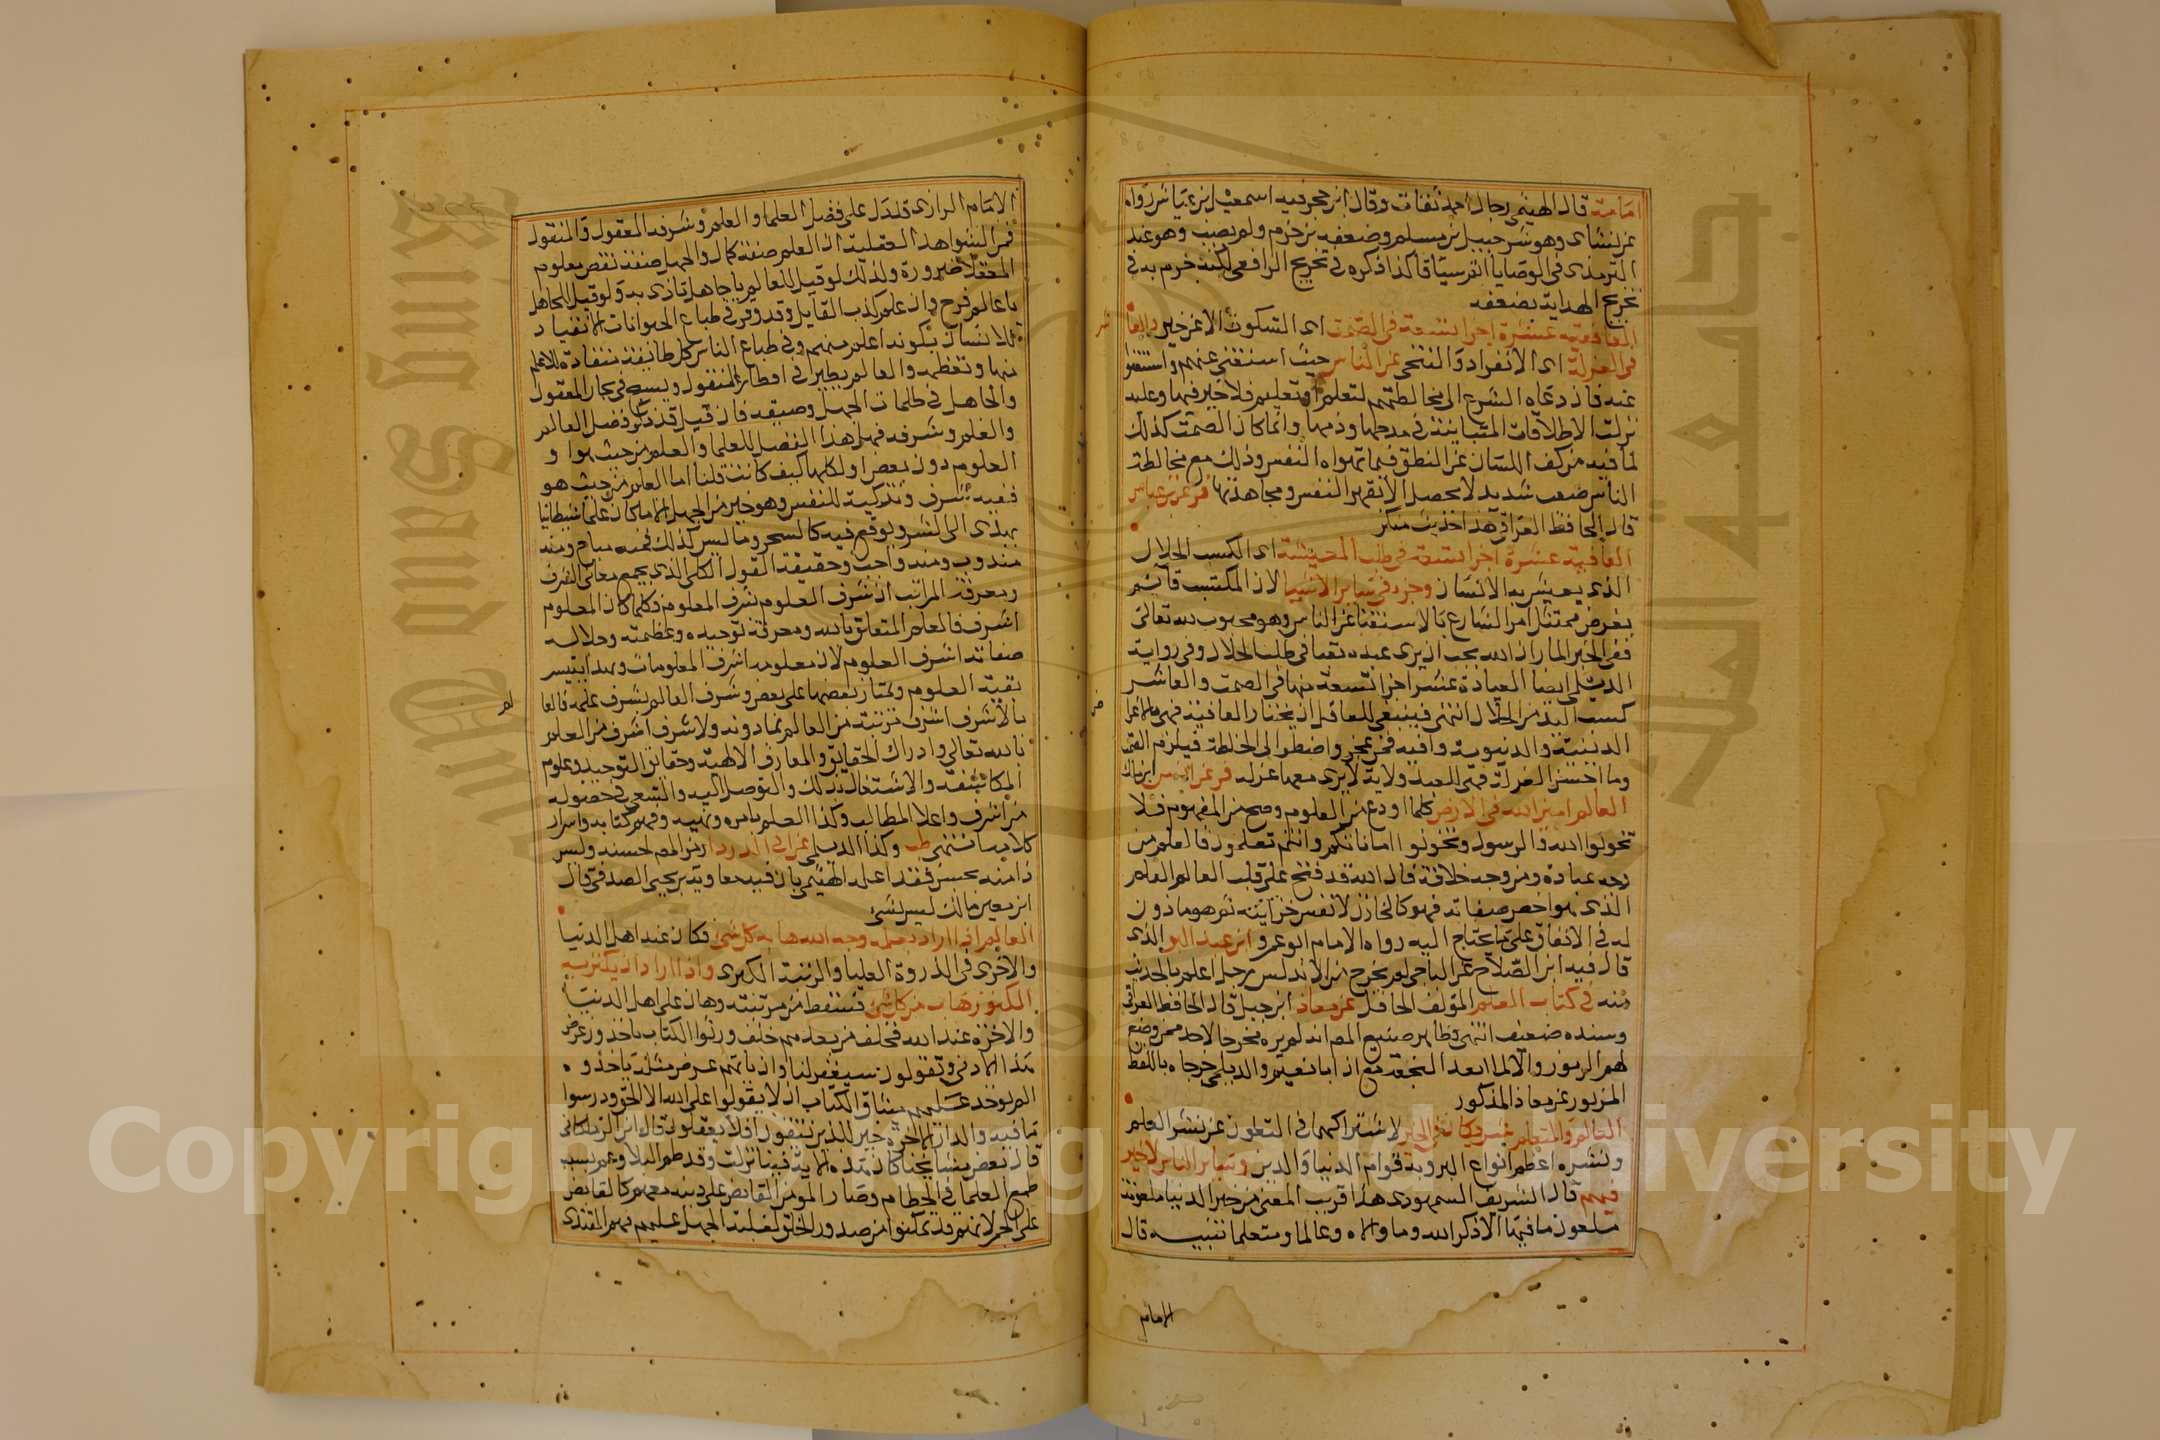 امامة قال الهيثمي رجال احمد ثقات وقال ابن حجر فيه اسمعيل بن عياش رواه
عن شامي وهو شرحبيل بن مسلم وضعفه بن حزم ولم يصب وهو عند
الترمذي في الوصايا اتم سياقا كذا ذكره في تخريج الرافعي لكنه جزم به في
تخريج الهداية بضعفه
العافية عشرة اجزا تسعة في الصمت اى السكوت الا عن خير والعا
فى العزلة اى الانفراد والتنحى عن الناس حيث استغنى عنهم واستغنوا
عنه فان دعاه الشرع الى مخالطتهم لتعلم او تعليم فلا خير فيها وعليه
نزلت الاطلاقات المتباينة في مدحها وذمها وانما كان الصمت كذلك
لما فيه من كف اللسان عن النطق فيما تهواه النفس وذلك مع مخالطة
الناس صعب شديد لا يحصل الا بقهر النفس ومجاهدتها فر عن بن عباس
قال الحافظ العراقي هذا حديث منكر
العافية عشرة اجزا تسعة في طلب المعيشة اى الكسب الحلال
الذى يعيش به الانسان وجزء في سائر الاشيا لان المكتسب قائم
بفرض ممتثل امر الشارع بالاستغنا عن الناس وهو محبوب لله تعالى
ففي الخبر المار ان الله يحب ان يرى عبده تعبا في طلب الحلال وفي رواية
الديلمي ايضا العبادة عشر اجزا تسعة منها في الصمت والعاشر
كسب اليد من الحلال انتهى فينبغي للعاقل ان يختار العافية فمن عجز
الدينية والدنيوية وافيه فمن عجز واضطر الى الخلطة فيلزم الصمت
وما احسن العزلة فهى للعبد ولاية لا يرى معها عزله فر عن انس ابن مالك
العالم امين الله في الارض كلما اودع من العلوم وصح من الفهوم فلا
تخونوا الله والرسول وتخونوا اماناتكم وانتم تعلمون فالعلم من
وجه عبادة ومن وجه خلافة قال الله قد فتح على قلب العالم العلم
الذى هو اخص صفاته فهو كالخازن لانفس خزاينه ثم هو ماذون
له في الانفاق على من يحتاج اليه رواه الامام ابو عمرو ابن عبد البر الذى
قال فيه ابن الصلاح عن الباجي لم يخرج من الاندلس رجل اعلم بالحديث
منه في كتاب العلم المؤلف الحافل عن معاذ ابن جبل قال الحافظ العراقي
وسنده ضعيف انتهى وظاهر صنيع المص انه لم يره مخرجا لاحد ممن وضع
لهم الرموز والا لما ابعد النجعة مع ان ابا نعيم والديلمي خرجاه باللفظ
المزبور عن معاذ المذكور
العالم والمتعلم شريكان في الخير لاشتراكهما في التعاون عن نشر العلم
ونشره اعظم انواع البر وبه قوام الدنيا والدين وسائر الناس لا خير
فيهم قال الشريف السمهودى هذا قريب المعنى من خبر الدنيا ملعونة
ملعون ما فيها الا ذكر الله وما والاه وعالما ومتعلما تنبيه قال
الامام
الامام الرازى قد دل على فضل العلما والعلم وشرفه المعقول والمنقول
فمن الشواهد العقلية ان العلم صفة كمال والجهل صفة نقص معلوم
للعقلا ضرورة ولذلك لو قيل للعالم يا جاهل تاذى به ولو قيل للجاهل
يا عالم فرح وان علم كذب القايل وقد وقر في طباع الحيوانات الانقياد
للانسان لكونه اعلم منهم وفي طباع الناس كل طائفة منقادة للاعلم
منها وتعظمه والعالم يطير في اقطار المنقول ويسبح في بحار المعقول
والجاهل في ظلمات الجهل وضيقه فان قيل قد ذكر فضل العالم
والعلم وشرفه فهل هذا الفضل للعلما والعلم من حيث هو او
العلوم دون بعض او لكلها كيف كانت قلنا اما العلم من حيث هو
ففيه شرف وتذكية للنفس وهو خير من الجهل الا ما كان علما شيطانيا
يهدى الى الشر ويوقع فيه كالسحر وما ليس كذلك فمنه مباح ومنه
مندوب ومنه واجب وحقيقة القول الكلى الذى يجمع معانى الشرف
ومعرفة المراتب ان شرف العلوم بشرف المعلوم فكلما كان المعلوم
اشرف فالعلم المتعلق بالله ومعرفة توحيده وعظمته وجلاله
صفاته اشرف العلوم لان معلومه اشرف المعلومات وبهذا يتيسر
بقية العلوم وتمتاز بعضها على بعض وشرف العالم بشرف علمه فالعا
لم
بالاشرف اشرف مرتبة من العالم بما دونه ولا شرف اشرف من العلم
بالله تعالى وادراك الحقائق والمعارف الالهية وحقائق التوحيد وعلوم
المكاشفة والاشتغال بذلك والتوصل اليه والسعى في حصوله
من اشرف واعلا المطالب وكذا العلم بامره ونهيه وفهم كتابه واسرار
كلامه انتهى طب وكذا الديلمي عن ابى الدرداء رمز المص لحسنه وليس
ذا منه بحسن فقد اعله الهيثمي بان فيه معاوية بن يحيى الصدفي قال
ابن معين هالك ليس بشئ
العالم اذا اراد بعلمه وجه الله هابه كل شئ فكان عند اهل الدنيا
والاخرى في الذروة العليا والرتبة الكبرى واذا اراد ان يكنز به
الكنوز هاب من كل شئ فسقط من مرتبته وهان على اهل الدنيا
والاخرة عند الله فخلف من بعدهم خلف ورثوا الكتاب ياخذون عرض
هذا الادنى ويقولون سيغفر لنا وان ياتهم عرض مثله ياخذوه
الم يوخذ عليهم ميثاق الكتاب ان لا يقولوا على الله الا الحق ودرسوا
ما فيه والدار الاخرة خير للذين يتقون افلا يعقلون قال ابن الزملكانى
قال بعض مشايخنا كان هذه الاية فينا نزلت وقد طم البلا وعم بسبب
طمع العلما في الحطام وصار المومن القابض على دينه معهم كالقابض
على الجمر لانهم قد تمكنوا من صدور الخلق لغلبة الجهل عليهم فهم المقتدى